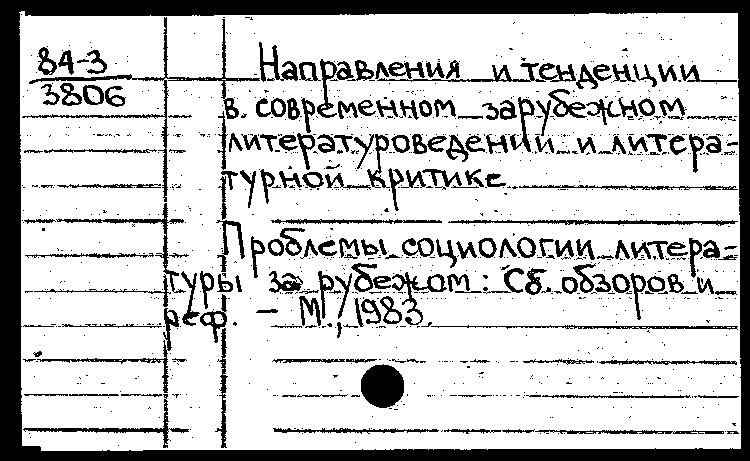 84-3
3806
Направления и тенденции
в современном зарубежном
литературоведении и литера-
турной критике
Проблемы социологии литера-
туры за рубежом: Сб. обзоров и
реф. - М., 1983.